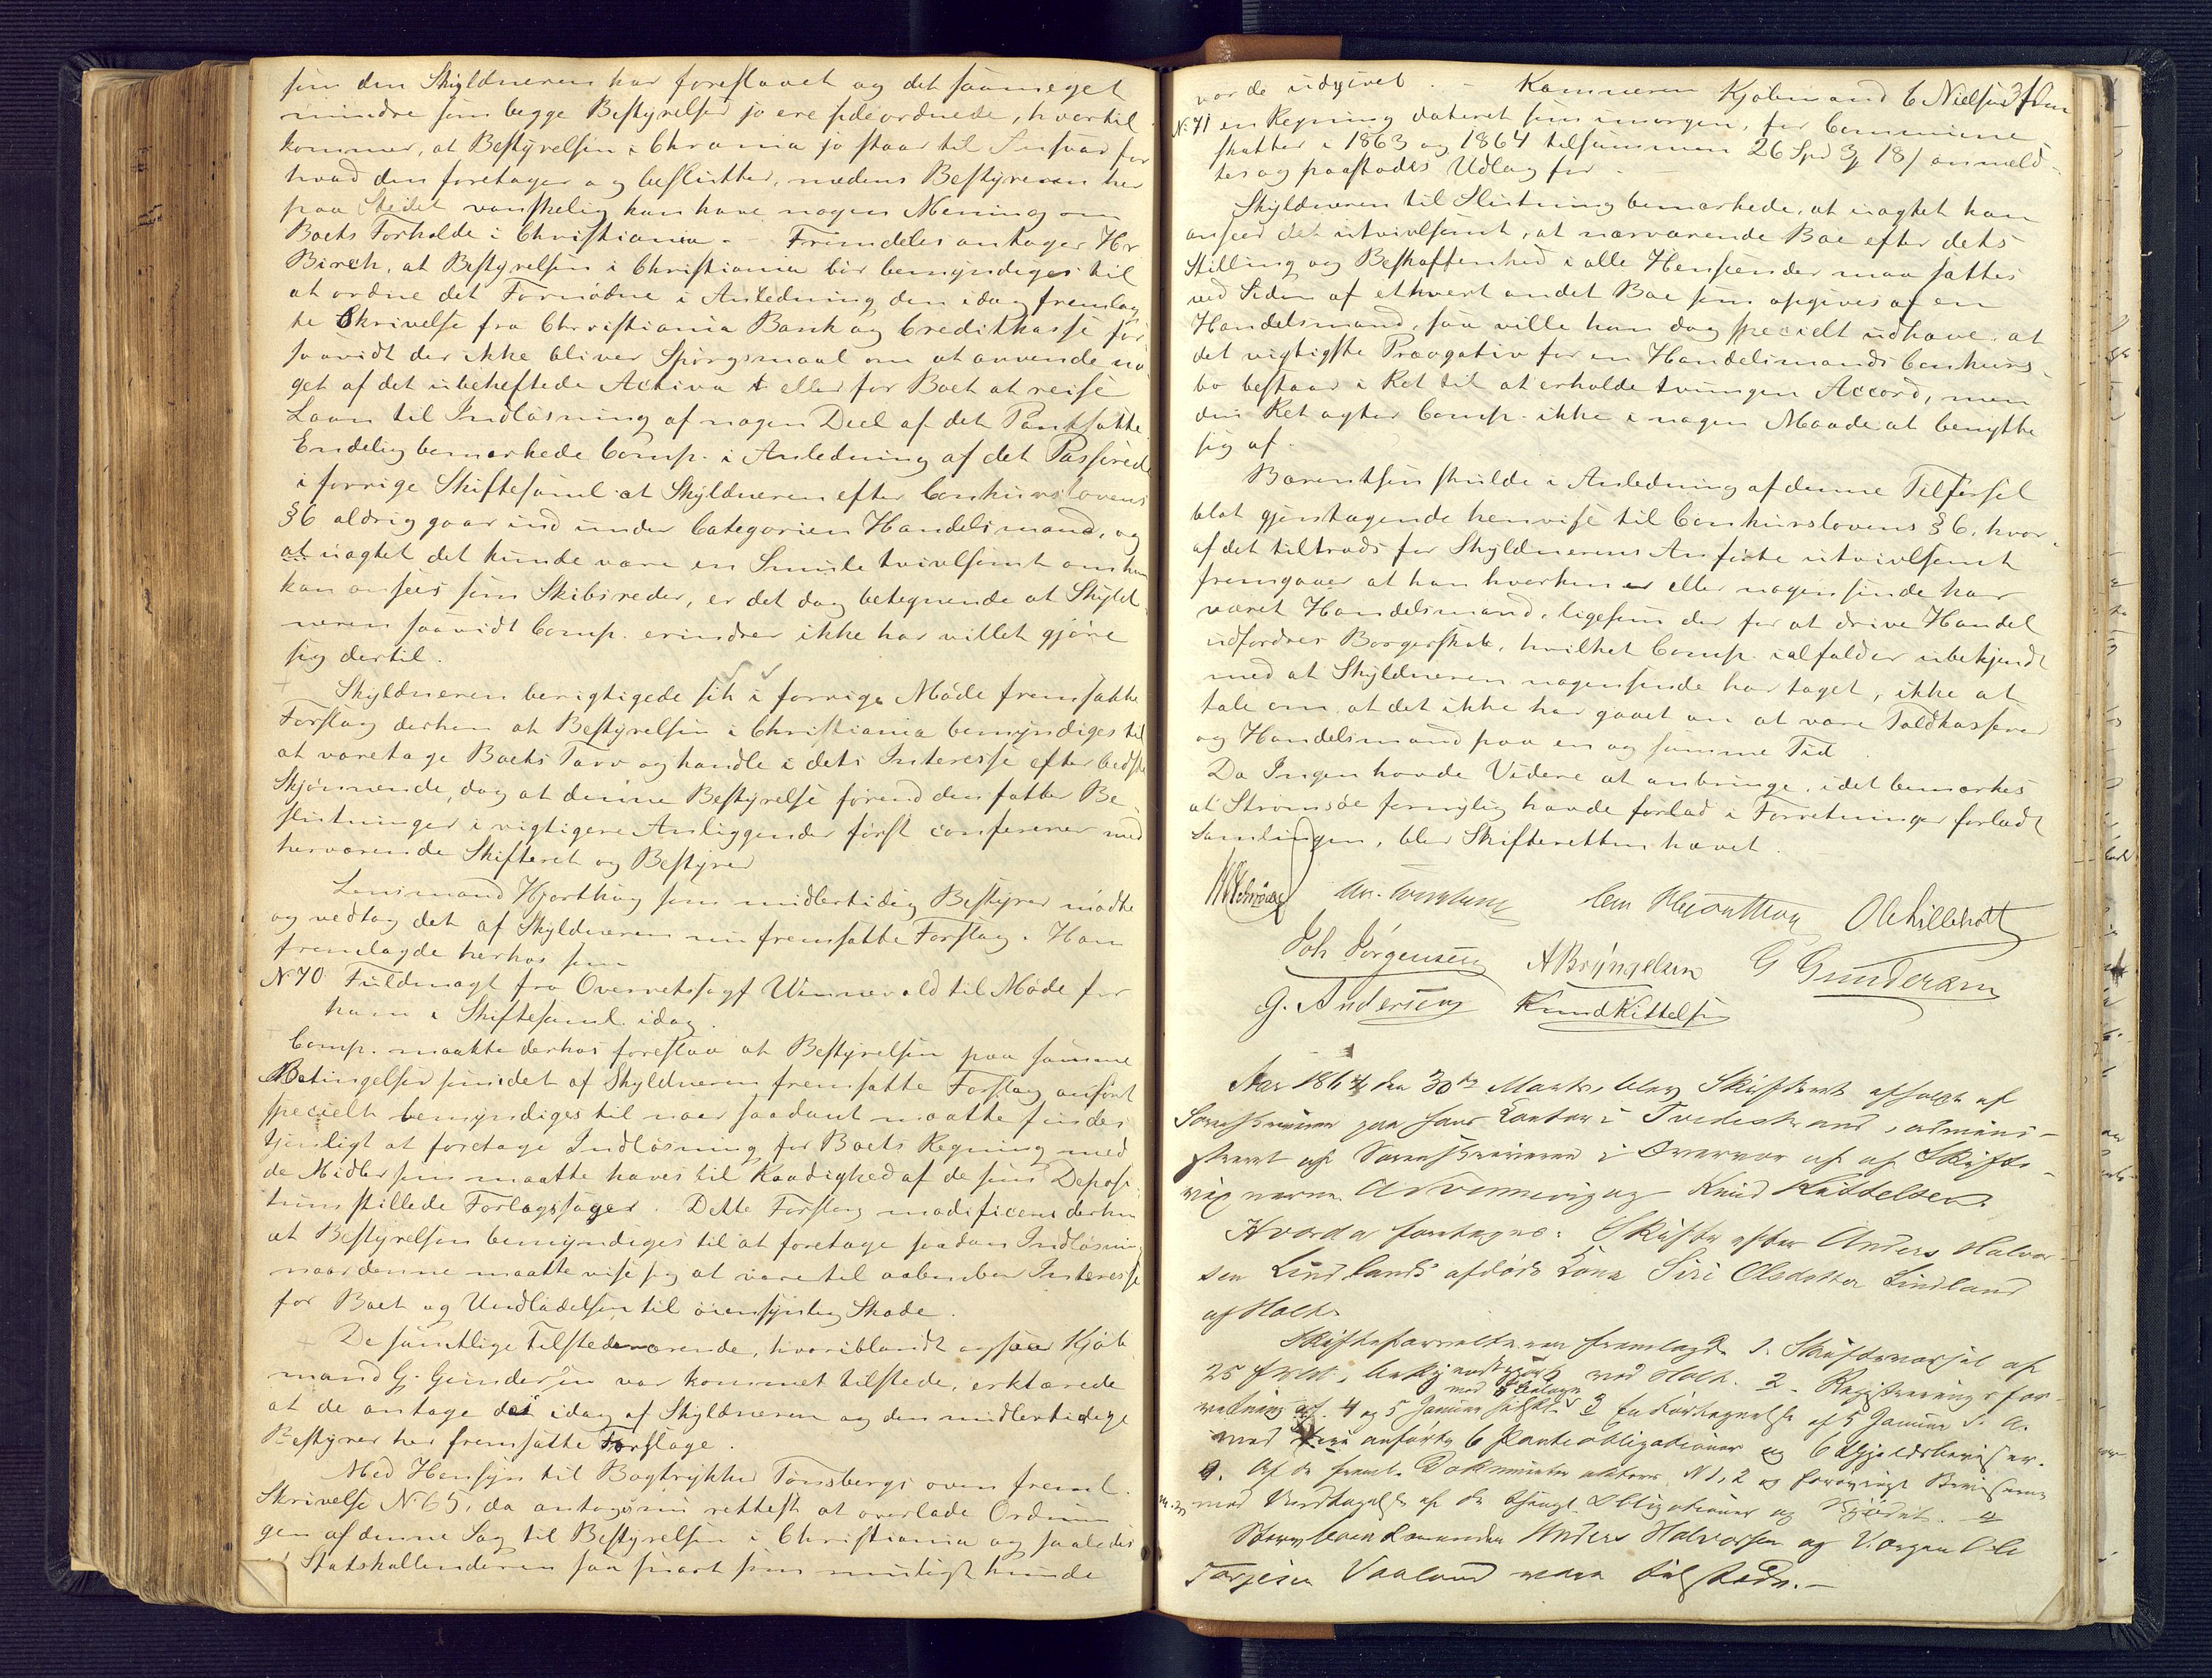 som den Skyldneren har foreslaaet og det saameget
mindre som begge Bestyrelser jo ere sideordnede, hvortil
kommer, at Bestyrelsen i Chrania jo staar til Ansvar for
hvad den foretager og beslutter, medens Bestyreren her
paa Stedet vanskelig kan have nogen Mening om
Boets Forholde i Christiania. - Fremdeles antager Hr
Birch, at Bestyrelsen i Christiania bør bemyndiges til
at ordne det Fornødne i Anledning den idag fremlag
te Skrivelse fra Christiania Bank og Creditkasse for
saavidt der ikke bliver Spørgsmaal om at anvende no
get af det ubeheftede Activa eller for Boet at reise
Laan til Indløsning af nogen Deel af det Pantsatte.
Endelig bemærkede Comp. i Anledning af det Passerede
i forrige Skiftesaml. at Skyldneren efter Conkurslovens
§ 6 aldrig gaar ind under Categorien Handelsmand, og
at uagtet det kunde være en Smule tvivlsomt om han
kan ansees som Skibsreder, er det dog betegnende at Skyld
neren saavidt Comp. erindrer ikke har villet gjøre
sig dertil.
Skyldneren berigtigede sit i forrige Møde fremsatte
Forslag derhen at Bestyrelsen i Christiania bemyndiges til
at varetage Boets Tarv og handle i dets Interesse efter bedste
Skjønnende, dog at denne Bestyrelse førend den fatter Be-
slutninger i vigtigere Anliggender først confererer med
herværende Skifteret og Bestyrer
Lensmand Hjorthaug som midlertidig Bestyrer mødte
og vedtog det af Skyldneren nu fremsatte Forslag. Han
fremlagde herhos som
N 70 Fuldmagt fra Overretssagf Winnevold til Møde for
ham i Skiftesaml. idag.
Comp. maatte derhos foreslaa at Bestyrelsen paa samme
Betingelser som i det af Skyldneren fremsatte Forslag anført
specielt bemyndiges til naar saadant maatte findes
tjenligt at foretage Indløsning for Boets Regning med
de Midler som maatte haves til Raadighed af de som Depo
tum stillede Forlagssager. Dette Forslag modificeres derhen
at Bestyrelsen bemyndiges til at foretage saadan Indløsning
naar denne maatte vise sig at være til aabenbar Interesse
for Boet og Undladelsen til øiensynlig Skade.
De samtlige Tilstedeværende, hvoriblandt ogsaa Kjøb
mand G. Gundersen var kommet tilstede, erklærede
at de antage det idag af Skyldneren og den midlertidige
Bestyrer her fremsatte Forslage.
Med Hensyn til Bogtrykker Tønsbergs oven freml.
Skrivelse N 65, da antoges rettest at overlade Ordnin
gen af denne Sag til Bestyrelsen i Christiania og saaledes
Statskallenderen saa snart som muligt kunde
vorde udgivet. - Kæmneren Kjøbmand C Nielsen
N. 71 en Regning dateret som imorgen, for Commune
skatter i 1863 og 1864 tilsammen 26 Spd 3 18/ anmeld-
tes og paastodes Udlæg for. -
Skyldneren til Slutning bemærkede, at uagtet han
anseer det utvivlsomt, at nærværende Boe efter dets
Stilling og Beskaffenhed i alle Henseender maa sættes
ved Siden af ethvert andet Boe som opgives af en
Handelsmand, saa ville han dog specielt udhæve at
det vigtigste Prærogativ for en Handelsmands Conkurs-
bo bestaar i Ret til at erholde tvungen Accord, men
den Ret agter Comp. ikke i nogen Maade at benytte
sig af.
Barentsen skulde i Anledning af denne Tilførsel
blot gjentagende henvise til Conkurslovens § 6, hvor-
af det tiltrods for Skyldnerens Anførte utvivlsomt
fremgaaer at han hverken er eller nogensinde har
været Handelsmand, ligesom der for at drive Handel
udfordres Borgerskab, hvilket Comp. ialfald er ubekjendt
med at Skyldneren nogensinde har taget, ikke at
tale om, at det ikke har gaaet an at være Toldkasserer
og Handelsmand paa en og samme Tid
Da Ingen havde Videre at anbringe, idet bemærkes
at Strømsøe havde forlad i Forretninger forladt
Samlingen, blev Skifteretten hævet.
Ole Lilleholt
Joh Jørgensen A Bryngelsen G Gundersen
G. Andersen Knud Kittelsen
Aar 1864 den 30te Marts, blev Skifteret afholdt af
Sorenskriveren paa hans Contor i Tvedestrand, admini-
streret af Sorenskriveren i Overvær af af Skifte-
og Knud Kittelsen.
Hvorda foretages: Skifte efter Anders Halvor-
sen Lindlands afdøde Kone Siri Olsdatter Lindland
af Holt.
Skifteforvalteren fremlagde 1. Skiftevarsel af
25 f. M. ved Holt. 2. Registreringsfor-
retning af 4 og 5 Januar 3 En Fortegnelse af 5 Januar d. A.
med anførte 6 Panteobligationer og 6 Gjeldsbeviser.
Af de freml. Dokumenter N 1, 2 og forøvrigt Beviserne
med Undtagelse af de Obligationer og
Anders Halvorsen og Værgen Ole
Torjesen Vaaland vare tilstede. -